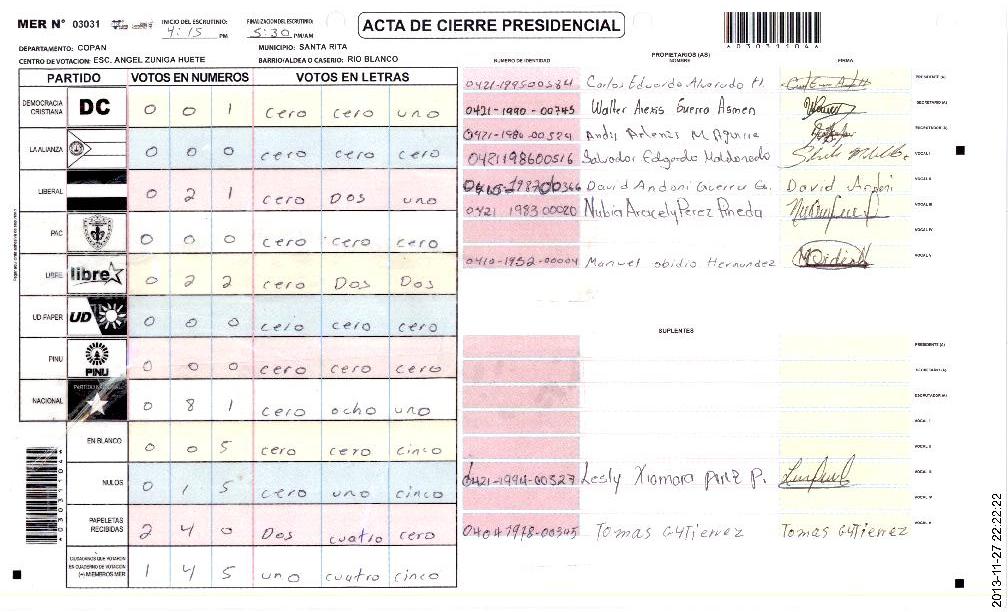 MER N° 03031
INICIO DEL ESCRUTINIO: 4:15 PM
FINALIZACION DEL ESCRUTINIO: 5:30 PM/AM
ACTA DE CIERRE PRESIDENCIAL
DEPARTAMENTO: COPAN
MUNICIPIO: SANTA RITA
CENTRO DE VOTACION: ESC. ANGEL ZUNIGA HUETE
BARRIO/ALDEA O CASERIO: RIO BLANCO
PARTIDO VOTOS EN NUMEROS VOTOS EN LETRAS
DEMOCRACIA CRISTIANA DC 0 0 1 cero cero uno
LA ALIANZA 0 0 0 cero cero cero
LIBERAL 0 2 1 cero Dos uno
PAC 0 0 0 cero cero cero
LIBRE libre 0 2 2 cero Dos Dos
UD FAPER UD 0 0 0 cero cero cero
PINU PINU 0 0 0 cero cero cero
NACIONAL PARTIDO NACIONAL 0 8 1 cero ocho uno
EN BLANCO 0 0 5 cero cero cinco
NULOS 0 1 5 cero uno cinco
PAPELETAS RECIBIDAS 2 4 0 Dos cuatro cero
CIUDADANOS QUE VOTARON EN CUADERNO DE VOTACION (+) MIEMBROS MER 1 4 5 uno cuatro cinco
PROPIETARIOS (AS)
NUMERO DE IDENTIDAD NOMBRE FIRMA
0421-199500584 Carlos Eduardo Alvarado H. PRESIDENTE (A)
0421-1990-00745 Walter Alexis Guerra SECRETARIO (A)
0421-1986-00524 Andy M. Aguirre ESCRUTADOR (A)
0421198600516 Salvador Edgardo Maldonado VOCAL I
David Andoni Guerra G. David Andoni VOCAL II
0421 1983 00020 Nubia Aracely Perez Pineda VOCAL III
VOCAL IV
0410-1952-00004 Manuel obidio Hernandez VOCAL V
SUPLENTES
PRESIDENTE (A)
SECRETARIO (A)
ESCRUTADOR (A)
VOCAL I
VOCAL II
0421-1994-00327 Lesly Xiomara P. VOCAL III
VOCAL IV
04041978-00345 Tomas Gutierrez Tomas Gutierrez VOCAL V
A03031104
2013-11-27 22:22:22